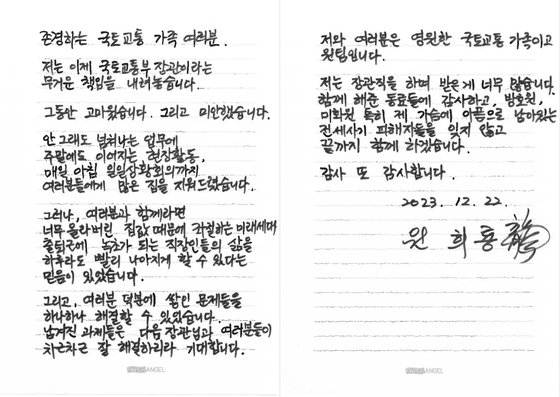 존경하는 국토교통 가족 여러분.
저는 이제 국토교통부 장관이라는
무거운 책임을 내려놓습니다.
그동안 고마웠습니다. 그리고 미안했습니다.
안 그래도 넘쳐나는 업무에
주말에도 이어지는 현장활동,
매일 아침 일일상황회의까지
여러분들에게 많은 짐을 지워드렸습니다.
그러나, 여러분과 함께라면
너무 올라버린 집값 때문에 좌절하는 미래세대
출퇴근에 녹초가 되는 직장인들의 삶을
하루라도 빨리 나아지게 할 수 있다는
믿음이 있었습니다.
그리고, 여러분 덕분에 쌓인 문제들을
하나하나 해결할 수 있었습니다.
남겨진 과제들은 다음 장관님과 여러분들이
차근차근 잘 해결하리라 기대합니다.
ANGEL
저와 여러분은 영원한 국토교통 가족이고
원팀입니다.
저는 장관직을 하며 받은 게 너무 많습니다.
함께 해준 동료들에 감사하고, 방호원,
미화원 특히 제 가슴에 아픔으로 남아있는
전세사기 피해자들을 잊지 않고
끝까지 함께 하겠습니다.
감사 또 감사합니다.
2023. 12. 22.
원 희 룡
ANGEL